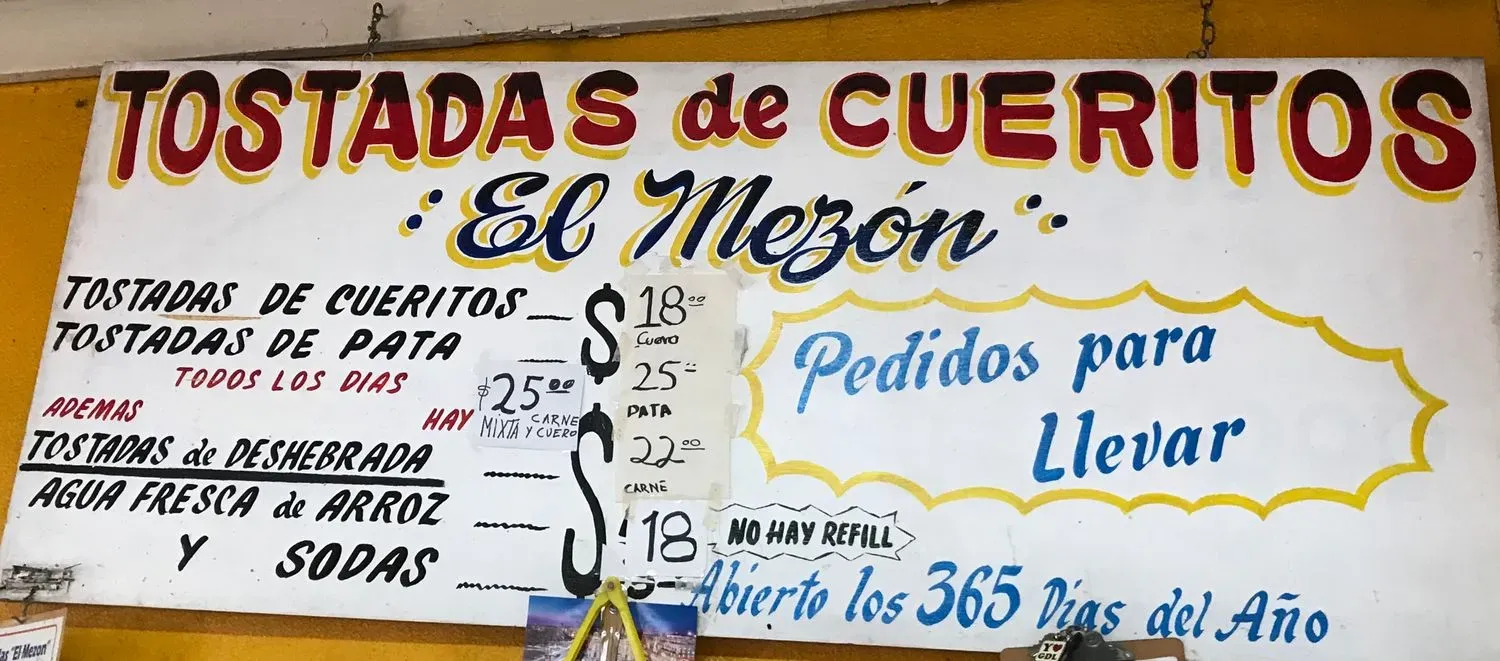 TOSTADAS de CUERITOS
El Mezón
TOSTADAS DE CUERITOS $ 18.00
Cuero
TOSTADAS DE PATA 25
PATA
TODOS LOS DIAS
ADEMAS HAY
$25.00
MIXTA CARNE Y CUERO
TOSTADAS de DESHEBRADA $ 22.00
CARNE
AGUA FRESCA de ARROZ 18
Y SODAS
NO HAY REFILL
Pedidos para
Llevar
Abierto los 365 Dias del Año
"El Mezon"
GDL